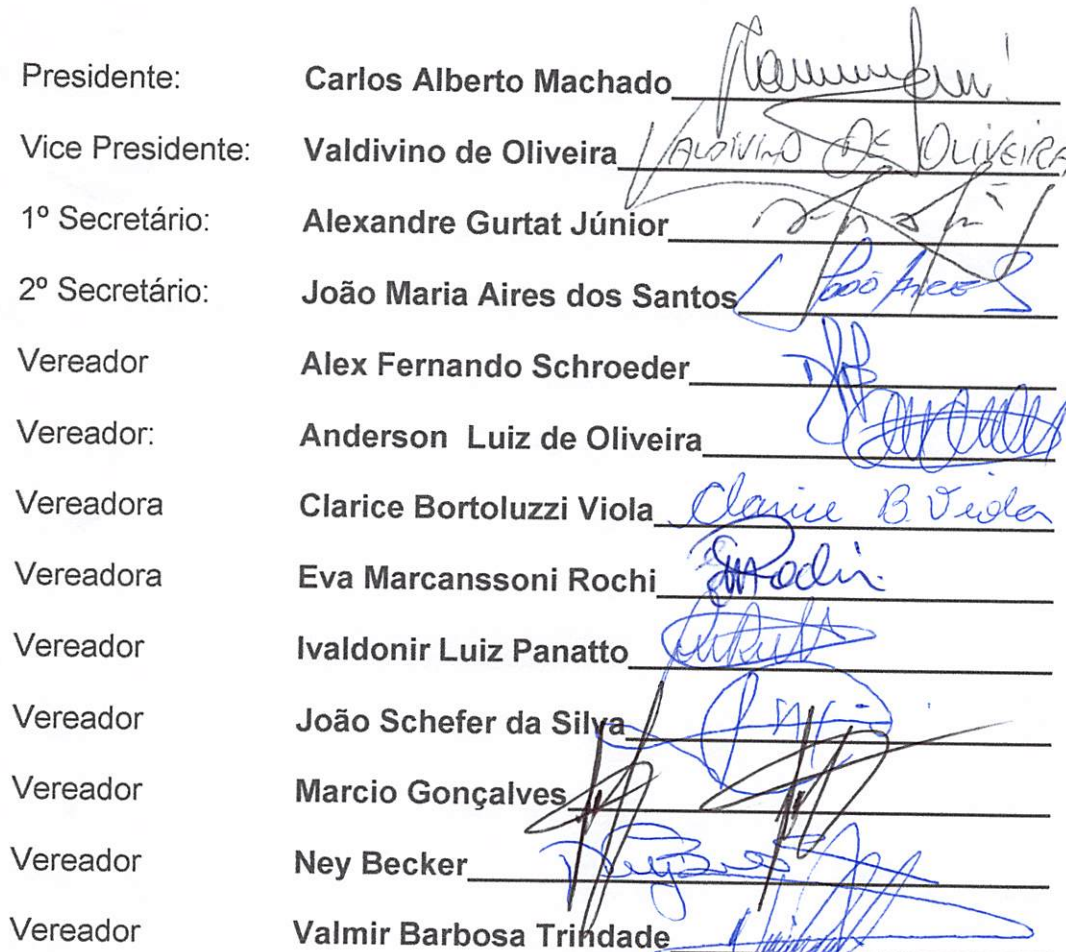 Presidente: Carlos Alberto Machado
Vice Presidente: Valdivino de Oliveira VALDIVINO DE OLIVEIRA
1º Secretário: Alexandre Gurtat Júnior
2º Secretário: João Maria Aires dos Santos
Vereador Alex Fernando Schroeder
Vereador: Anderson Luiz de Oliveira
Vereadora Clarice Bortoluzzi Viola Clarice B. Viola
Vereadora Eva Marcanssoni Rochi
Vereador Ivaldonir Luiz Panatto
Vereador João Schefer da Silva
Vereador Marcio Gonçalves
Vereador Ney Becker
Vereador Valmir Barbosa Trindade